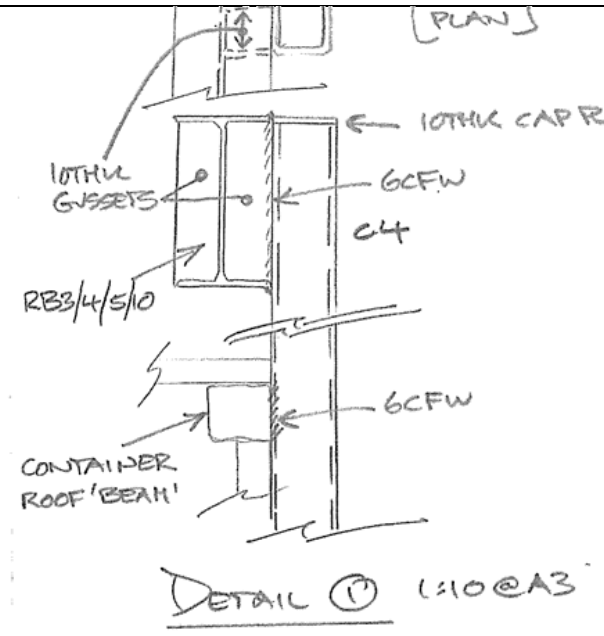 [PLAN]
10THK CAP PL
10THK
GUSSETS
6CFW
C4
RB3/4/5/10
6CFW
CONTAINER
ROOF 'BEAM'
DETAIL 1 1:10@A3